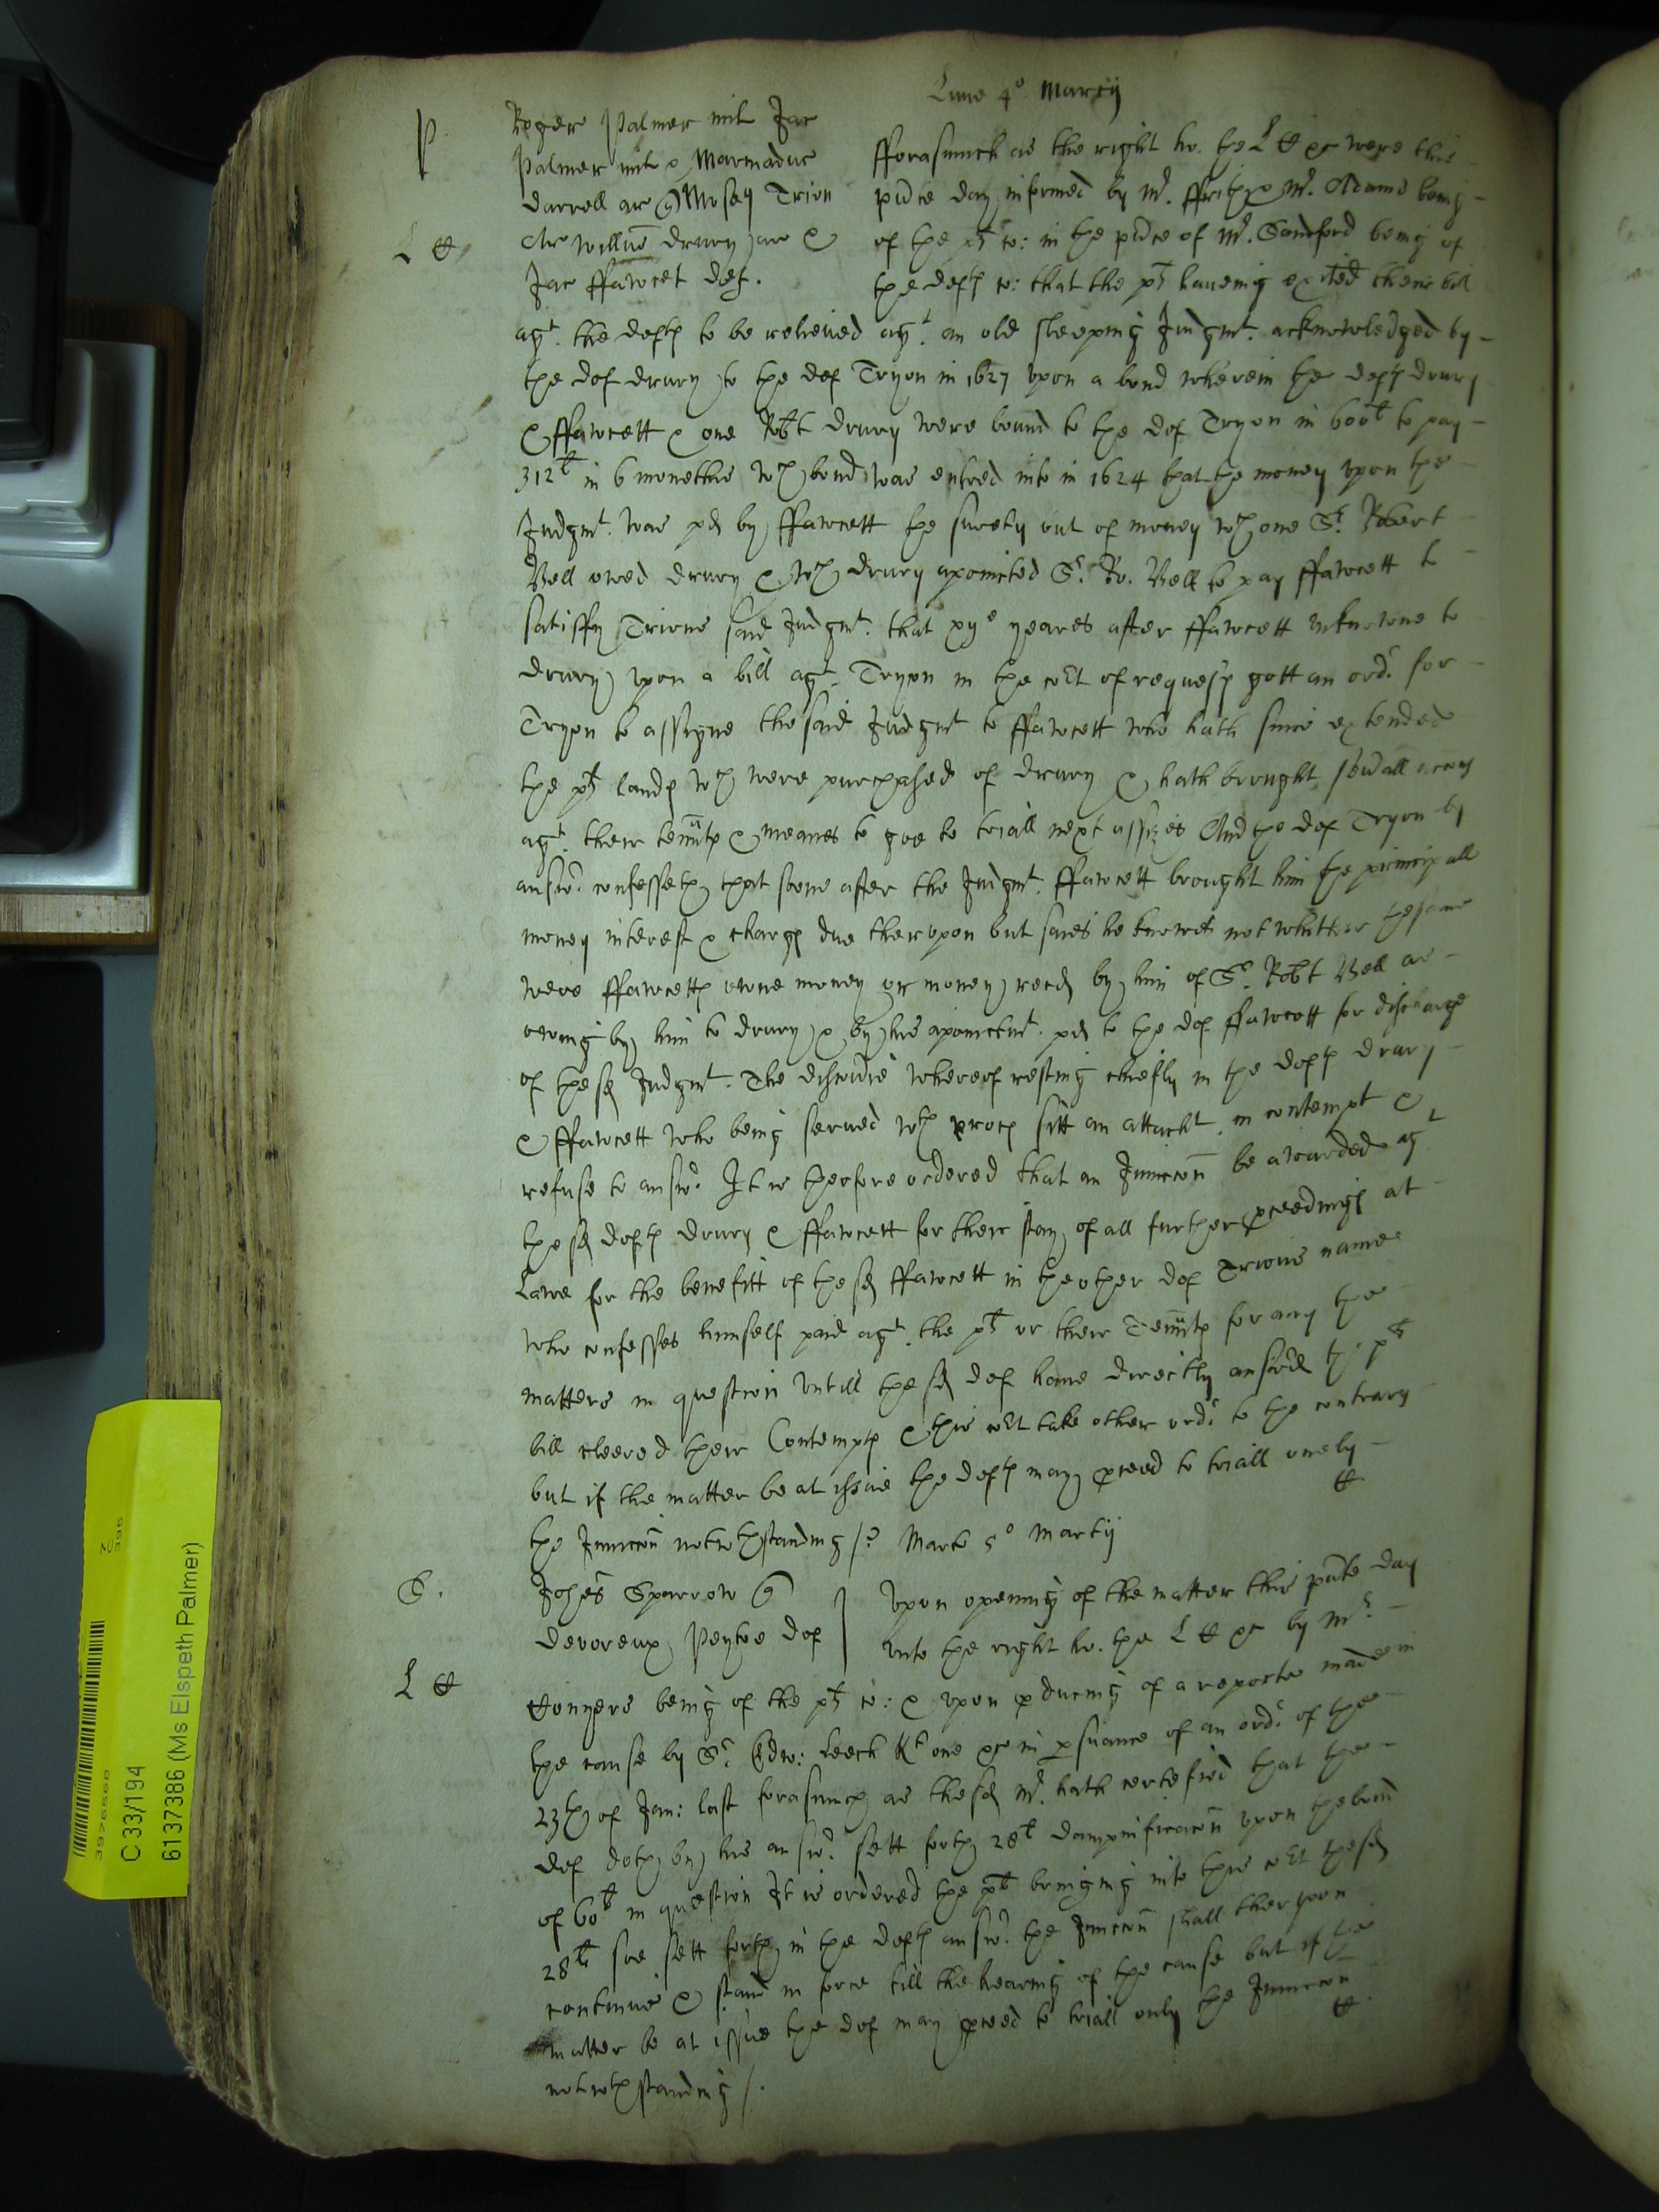 Lune 4° Marcij
P
Roger Palmer mil Jac
Palmer mil & Marmaduc
Darrell ar q Mosen Trion
L C
Ar Willm̄ Drury ar &
Jac ffawcet def.
fforasmuch as the right ho. the L C &c were this
pñte day informed by Mr. & Mr. Adams being
of the plt co: in the pñce of Mr. Sandford being of
the deftes co: that the plt haueing exited their bill
agt. the deftes to be releiued agt. an old sleeping Judgmt. acknowledged by
the def Drury to the def Tryon in 1627 vpon a bond wherein the deftes Drury
& ffawcett & one Robt Drury were bound to the def Tryon in 600l to pay
312l in 6 moneths wch bond was entred into in 1624 that the money vpon the
Judgmt. was pd by ffawcett the surety out of money wch one Sr. Robert
Bell owed Drury & wch Drury apointed Sr. Ro. Bell to pay ffawcett to
satisfy Trions said Judgmt. that yeares after ffawcett vnknowne to
Drury vpon a bill agt. Tryon in the cort of requests gott an ordr for
Tryon to assigne the said Judgmt to ffawcett who hath since extended
the plt landes wch were purchased of Drury & hath brought seuall accons
agt. their tennts & meanes to goe to triall next assizes And the def Tryon by
answr. confesseth that soone after the Judgmt. ffawcett brought him the principall
money interest & charges due therevpon but saies he knowes not whither the same
were ffawcetts owne money or money recd by him of Sr. Robt Bell as
oweing by him to Drury & by his apointmt. pd to the def ffawcett for discharge
of the sd Judgmt. The discouie whereof resting chiefly in the deftes Drury
& ffawcett who being serued wth proces sitt an attachmt. in contempt &
refuse to answr. It is therfore ordered that an Juncc̄on be awarded agt
the sd deftes Drury & ffawcett for their stay of all further pceedings at
Lawe for the benefitt of the sd ffawcett in the other def Trions name
who confesses himself paid agt. the plt or their Tennts for any the
matters in question vntill the sd def haue directly answrd the plts
bill cleered their Contempts & this cort take other ordr to the contrary
but if the matter be at issue the deftes may pceed to triall onely
the Juncc̄on notwthstanding /.
Marts 5° Martij
S.
Johes Sparrow q
Devoreux Peytoe def
L C
Vpon opening of the matter this pñte day
vnto the right ho. the L C &c by Mr.
Conyers being of the plt co: & vpon pduceing of a reporte made in
the cause by Sr. Edw: Leech Kt one &c in psuance of an ordr. of the
23th of Jan: last forasmuch as the sd Mr. hath certefied that the
def doth by his answr. sett forth 28l dampnificac̄on vpon the bond
of 60l in question It is ordered the plt bringing into this cort the sd
28l soe sett forth in the deftes answr. the Juncc̄on shall therevpon
continue & stand in force till the hearing of the cause but if the
matter be at issue the def may pceed to triall only the Juncc̄on
notwthstanding /.
39765586
C 33/194
6137386 (Ms Elspeth Palmer)